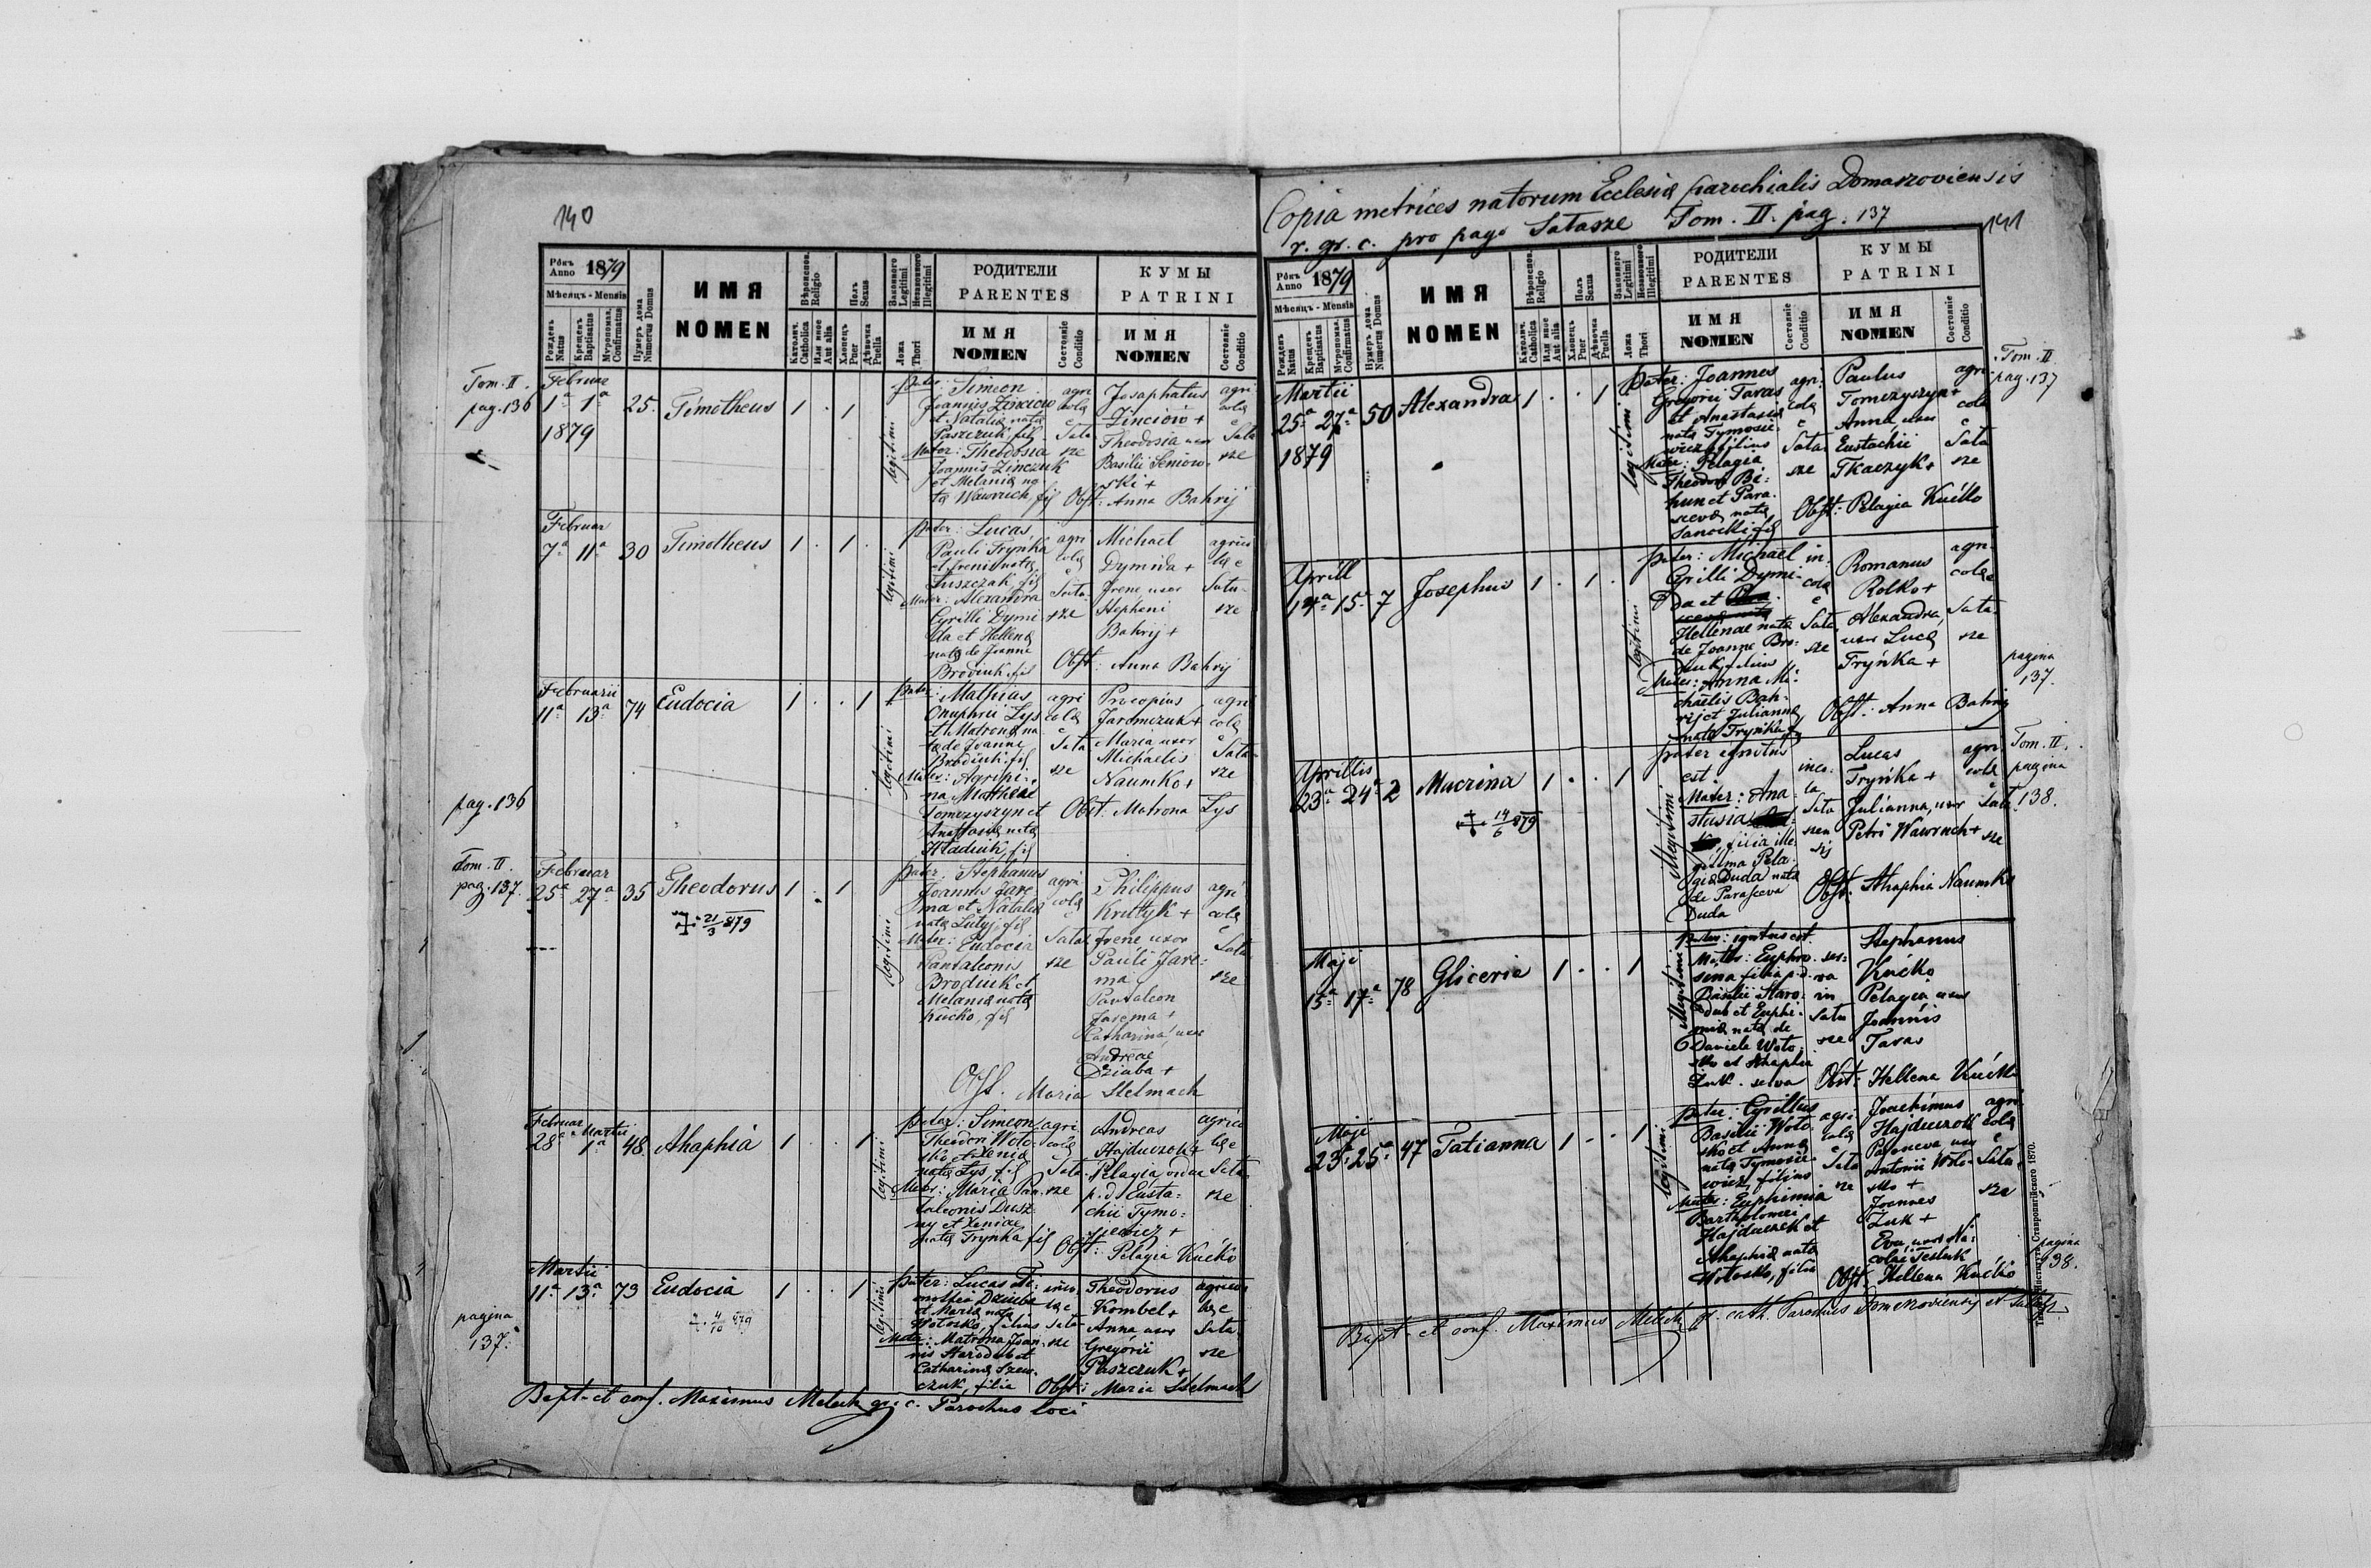 140
Рôкъ Anno 1879
Мѣсяць - Mensis
Рожденъ Natus
Крещенъ Baptisatus
Мѵропомаз. Confirmatus
Нумеръ дома Numerus Domus
ИМЯ
NOMEN
Вѣроиспов. Religio
Католич. Catholica
Или иное Aut alia
Полъ Sexus
Хлопецъ Puer
Дѣвочка Puella
Законного Legitimi
Незаконного Illegitimi
Ложа Thori
РОДИТЕЛИ
PARENTES
ИМЯ
NOMEN
Состояніе Conditio
КУМЫ
PATRINI
ИМЯ
NOMEN
Состояніе Conditio
Tom. II.
pag. 136
Februar
1ª 1ª 25. Timotheus 1 . 1
1879
legitimi
Pater: Simeon
Joannis Zinciow
et Natalia nata
Paszczuk, fil
Mater: Theodosia
Joannis Zinczuk
et Melania na
ta Wawruch, fil
agri
colæ
Sata
sze
Josaphatus
Zinciow +
Theodosia uxor
Basilii Seniow
ski +
agri
colæ
Sata
sze
Obst: Anna Bahrij
Februar
7ª 11ª 30 Timotheus 1 . 1 .
legitimi
Pater: Lucas,
Pauli Trynka
et Irenis nata
Luszczak, fil
Mater: Alexandra
Cyrilli Dymi
da et Hellena
nata de Joanne
Brodiuk, fil
agri
colæ
Sata
sze
Michael
Dymida +
Irene uxor
Stephani
Bahrij +
agrico
læ
Sata
sze
Obst: Anna Bahrij
Februarii
11ª 13ª 74 Eudocia 1 . . 1
legitimi
Pater: Mathias
Onuphrii Lys
et Matrona na
ta de Joanne
Brodiuk, fil
Mater: Agripi
na Mathæi
Tomczyszyn et
Anastasia nata
Hladiuk, fil
agri
colæ
Sata
sze
Procopius
Jaromczuk +
Maria uxor
Michaelis
Naumko +
agri
colæ
Sata
sze
Obst: Matrona Lys
pag. 136
Tom. II.
pag. 137.
Februar
25ª 27ª 35 Theodorus 1 . 1
21/3 879
legitimi
Pater: Stephanus
Joannis Jare
ma et Natalia
nata Lutyj, fil
Mater: Eudocia
Pantaleonis
Brodiuk et
Melania nata
Kućko, fil
agri
colæ
Sata
sze
Philippus
Kruttyk +
Irene uxor
Pauli Jare
ma
Pantaleon
Jarema +
Catharina, uxor
Andreæ
Dziaba +
agri
colæ
Sata
sze
Obst. Maria Stelmach
Februar Martii
28ª 1ª 48. Ahaphia 1 . . 1
legitimi
Pater: Simeon
Theodori Woto
sko et Xenia
nata Lys, fil
Mater: Maria Pan
taleonis Dusz
ny et Xeniae
nata Trynka fil
agri
colæ
Sata
sze
Andreas
Hajduczok +
Pelagia vidua
p. d. Eusta
chii Tymo
siewicz +
agrico
læ
Sata
sze
Obst: Pelagia Kućko
Martii
11ª 13ª 73 Eudocia 1 . . 1
4/10 879
pagina
137.
legitimi
Pater: Lucas Ti
mothei Dziuba
et Maria nata
Wotosko, filius
Mater: Matrona Joan
nis Starodub et
Catharina Szew
czuk, filia
inco
læ
Sata
sze
Theodorus
Kombel +
Anna uxor
Gregorii
Paszczuk +
agrico
læ
Sata
sze
Obst: Maria Stelmach
Bapt. et conf. Maximus Melech gr. c. Parochus loci
Copia metrices natorum Ecclesiæ parochialis Domaszoviensis
r. gr. c. pro pago Satasze Tom. II. pag. 137
141
Рôкъ Anno 1879
Мѣсяць - Mensis
Рожденъ Natus
Крещенъ Baptisatus
Мѵропомаз. Confirmatus
Нумеръ дома Numerus Domus
ИМЯ
NOMEN
Вѣроиспов. Religio
Католич. Catholica
Или иное Aut alia
Полъ Sexus
Хлопецъ Puer
Дѣвочка Puella
Законного Legitimi
Незаконного Illegitimi
Ложа Thori
РОДИТЕЛИ
PARENTES
ИМЯ
NOMEN
Состояніе Conditio
КУМЫ
PATRINI
ИМЯ
NOMEN
Состояніе Conditio
Tom. II
pag. 137
Martii
25ª 27ª 50 Alexandra 1 . . 1
1879
legitimi
Pater: Joannes
Gregorii Taras
et Anastasia
nata Tymosie
wicz, filius
Mater: Pelagia
Theodori Bi
hun et Para
sceva nata
Sanocki, fil
agri
colæ
Sata
sze
Paulus
Tomczyszyn +
Anna, uxor
Eustachii
Tkaczyk +
agri
colæ
Sata
sze
Obst: Pelagia Kućko
Aprill
14ª 15ª 7 Josephus 1 . 1 .
legitimi
Pater: Michaël
Cyrilli Dymi
da et
Hellenae nata
de Joanne Bro
diuk, filius
Mater: Anna Mi
chaëlis Bah
rij et Julianna
nata Trynka
in
cola
Sata
sze
Romanus
Rolko +
Alexandra,
uxor Lucæ
Tryńka +
agri
colæ
Sata
sze
Obst: Anna Bahrij
pagina
137.
Aprillis
23ª 24ª 2 Macrina 1 . . 1
14/6 879
Illegitimi
Pater ignotus
est
Mater: Ana
stasia
filia ille
gitima Pela
gia Duda nata
de Parasceva
Duda
inco
la
Sata
Lucas
Tryńka +
Julianna, uxor
Petri Wawruch +
agri
colæ
Sata
sze
Obst: Ahaphia Naumko
Tom. II.
pagina
138.
Maji
15ª 17ª 78 Gliceria 1 . . 1
Illegitimi
Pater: ignotus est.
Mater: Euphro
sina filia p. d.
Basilii Staro
dub et Euphi
mia nata de
Daniele Woto
sko et Ahaphia
Zuk. serva
ser
va
in
Sata
sze
Stephanus
Kućko
Pelagia uxor
Joannis
Taras
Obst: Hellena Kućko
Maji
23ª 25ª 47 Tatianna 1 . . 1
legitimi
Pater: Cyrillus
Basilii Woto
sko et Anna
nata Tymosie
wicz, filius
Mater: Euphimia
Bartholomei
Hajduczek et
Ahaphia nata
Wotosko, filia
agri
colæ
Sata
sze
Joachimus
Hajduczok
Parasceva uxor
Antonii Woto
sko +
Joannes
Zuk +
Eva, uxor Ni
colai Tesluk
agri
colæ
Sata
sze
Obst: Hellena Kućko
pagina
138.
Bapt. et conf. Maximus Melech gr. cath. Parochus Domaszoviensis et Satasze
Института Ставропигійского 1870.